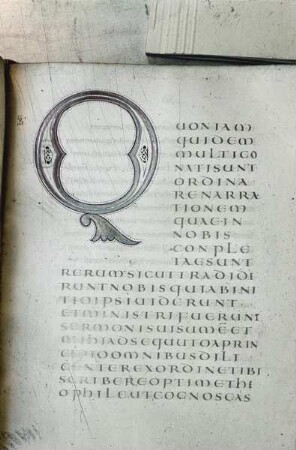 QUONIAM
QUIDEM
MULTI CO
NATI SUNT
ORDINA
RE NARRA
TIONEM
QUAE IN
NOBIS
CONPLE
TAE SUNT
RERUM SICUT TRADIDE
RUNT NOBIS QUI AB INI
TIO IPSI UIDERUNT
ET MINISTRI FUERUNT
SERMONIS UISUM EET
MIHI ADSEQUUTO A PRIN
CIPIO OMNIBUS DILI
GENTER EX ORDINE TIBI
SCRIBERE OPTIME THE
OPHILE UT COGNOSCAS